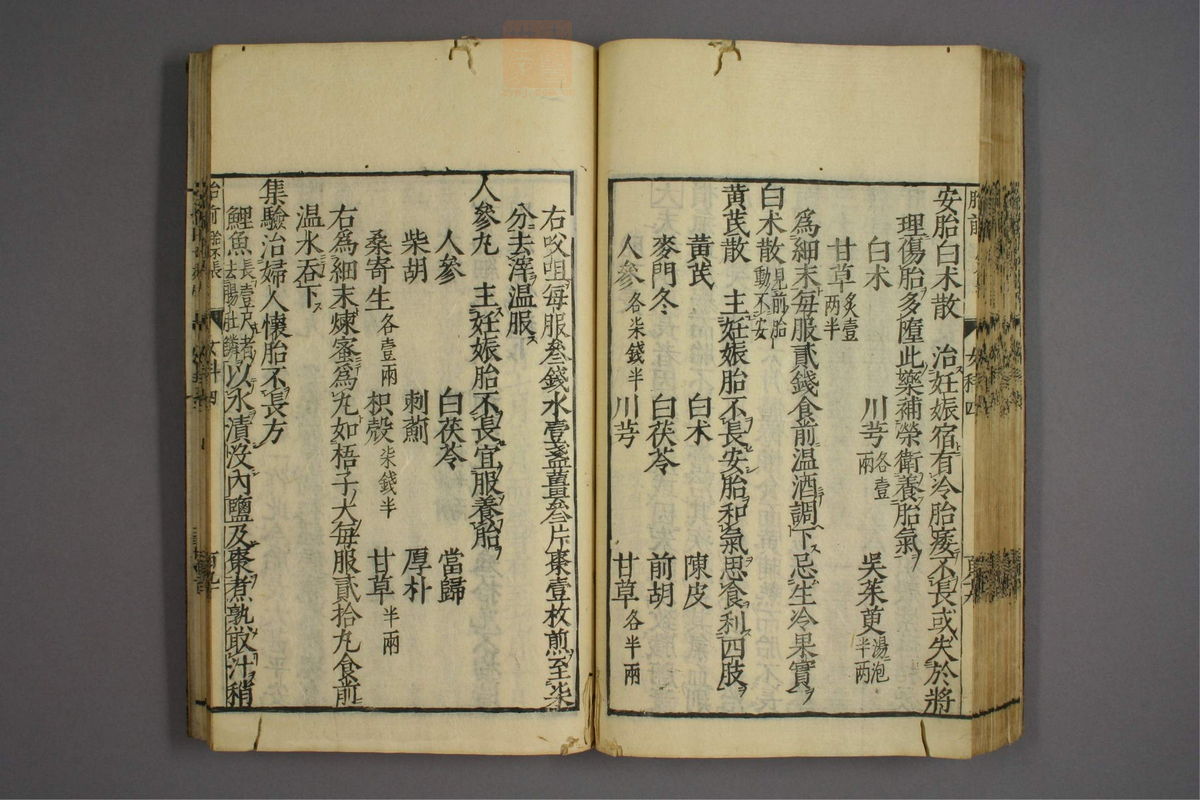 安胎白朮散　治妊娠宿有冷胎痿不長或失於將
理傷胎多墮此藥補榮衛養胎氣
白朮　川芎各壹兩　吳茱萸湯泡半兩
甘草炙壹兩半
爲細末每服貳錢食前溫酒調下忌生冷果實
白朮散見前胎動不安
黃芪散　主妊娠胎不長安胎和氣思食利四肢
黃芪　白朮　陳皮
麥門冬　白茯苓　前胡
人參各柒錢半　川芎　甘草各半兩
右㕮咀每服叄錢水壹盞薑叄片棗壹枚煎至柒
分去滓溫服
人參丸　主妊娠胎不長宜服養胎
人參　白茯苓　當歸
柴胡　刺薊　厚朴
桑寄生各壹兩　枳殼柒錢半　甘草半兩
右爲細末煉蜜爲丸如梧子大每服貳拾丸食前
溫水吞下
集驗治婦人懷胎不長方
鯉魚長壹尺者去腸肚鱗以水漬沒內鹽及棗煮熟取汁稍
胎前
女科四